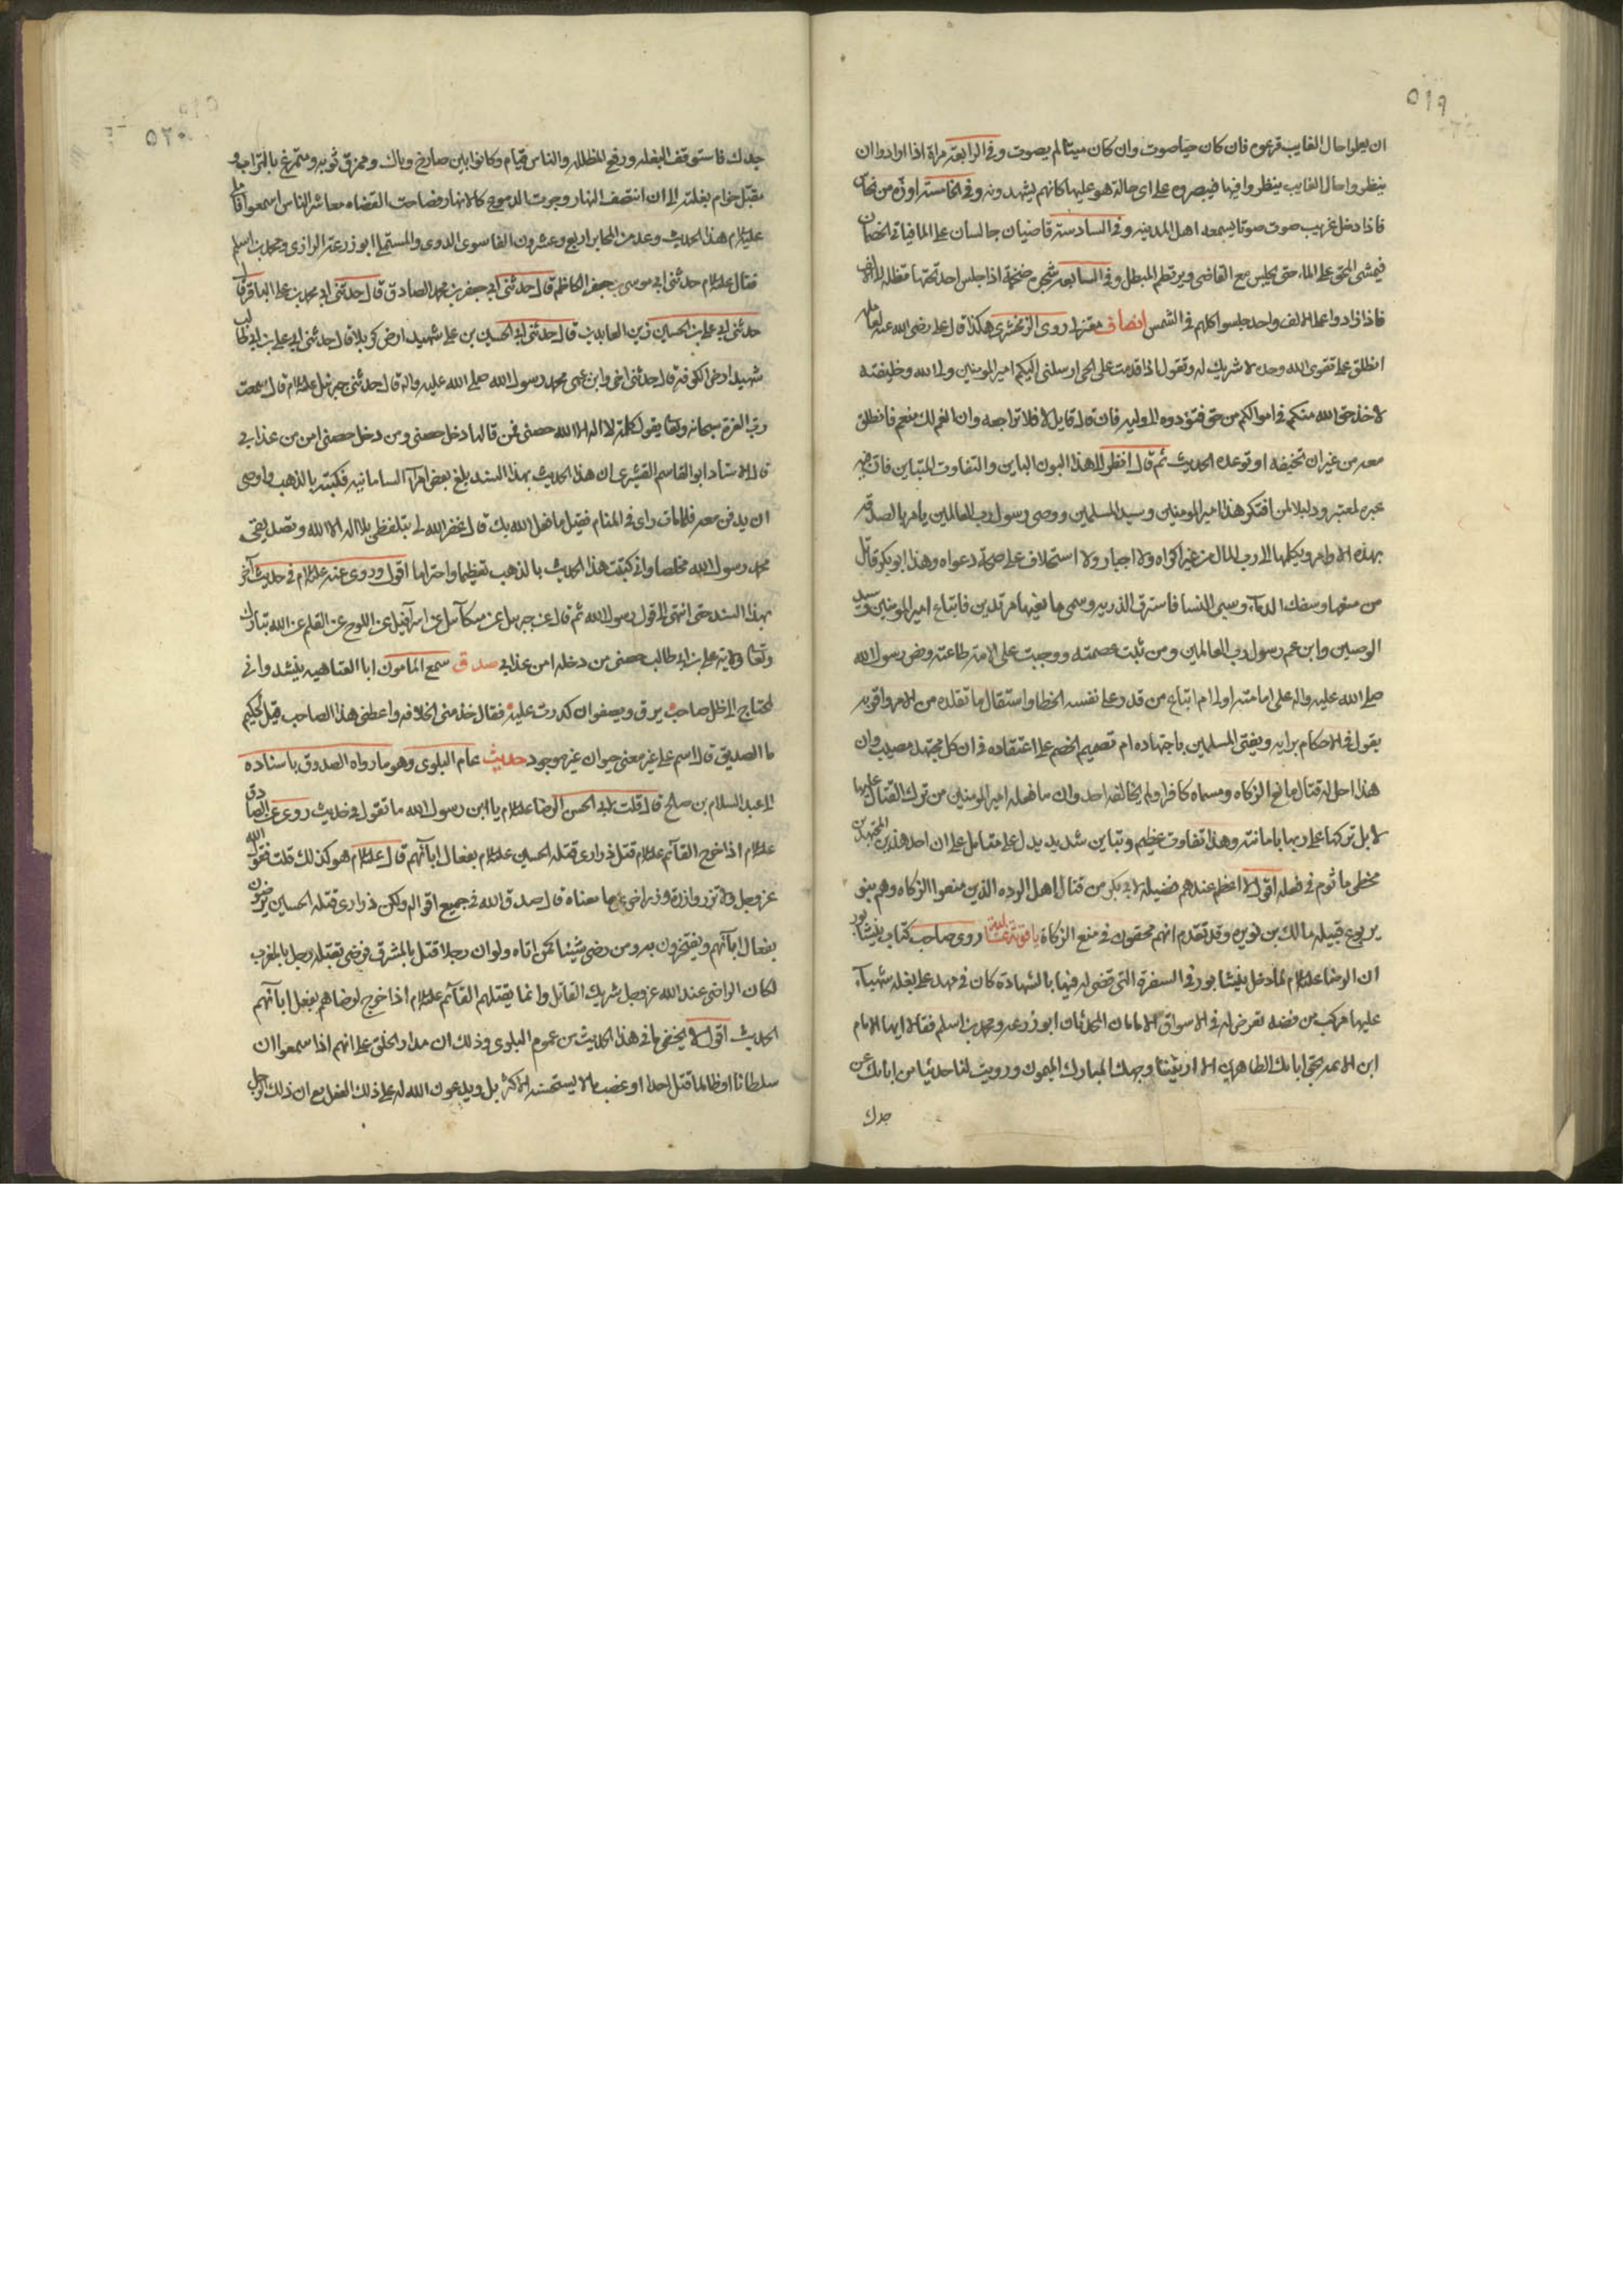 ٥١٩
ان يعلموا حال الغايب قرعوه فان كان حيا صوت وان كان ميتا لم يصوت وفي الرابعة مراة اذا ارادوا ان
ينظروا حال الغايب ينظروا فيها فيبصروه على اى حالة هو عليها كانهم يشهدونه وفي الخامسة اوزه من نحاس
فاذا دخل غريب صوت صوتا يسمعه اهل المدينه وفي السادسة قاضيان جالسان على الما فياتي الخصمان
فيمشى المحق على الماء حتى يجلس مع القاضى ويرتطم المبطل وفي السابعه شجره ضخمة اذا جلس احد تحتها تظله الى الالف
فاذا زادوا على الالف واحد جلسوا كلهم في الشمس انصاف معتزلى روى الزمخشرى هكذا قال على رضى الله عنه لعامله
انطلق على تقوى الله وحده لا شريك له وتقول اذا قدمت على الحى ارسلنى اليكم امير المومنين ولى الله وخليفته
لاخذ حق الله منكم في اموالكم من حق فتودوه الى وليه فان قال قايل لا فلا تراجعه وان انعم لك منعم فانطلق
معه من غير ان تخيفه او توعده الحديث ثم قال انظر الى هذا البون الباين والتفاوت المتباين فان فيه
عبره لمعتبر ودليلا لمن افتكر هذا امير المومنين وسيد المسلمين ووصى رسول رب العالمين يامر بالصدقه
بهذه الاوامر ويكلها الى رب المال من غير اكراه ولا اجبار ولا استحلاف على صحة دعواه وهذا ابو بكر قاتل
من منعها وسفك الدماء وسبى النسا فاسترق الذريه وسمى مانعيها مرتدين فاتباع امير المومنين وسيد
الوصيين وابن عم رسول رب العالمين ومن ثبت عصمته ووجبت على الامة طاعته ونص رسول الله
صلى الله عليه واله على امامته اولى ام اتباع من قدر على نفسه الخطا واستقال ما تقلده من الامر واقر به
يقول في الاحكام برايه ويفتى المسلمين باجتهاده ام تصميم الخصم على اعتقاده في ان كل مجتهد مصيب وان
هذا احل له قتال مانع الزكاه ومسماه كافرا ولم يخالفه احد وان ما فعله امير المومنين من ترك القتال عليها
لا بل تركها على ربها بامانته وهذا تفاوت عظيم وتباين شديد يدل على متامل على ان احد هذين المجتهدين
مخطى ماثوم في فعله اقول لا اعظم عندهم فضيله لابى بكر من قتال اهل الرده الذين منعوا الزكاه وهم بنو
يربوع قبيله مالك بن نويره وقد تقدم انهم محقون في منع الزكاة ياقوتة روى صاحب كتاب نيشابور
ان الرضا علیه السلام لما دخل نيشابور في السفرة التى قضى له فيها بالشهادة كان في مهد على بغله شهباء
عليها مركب من فضه تعرض له في الاسواق الامامان المحدثان ابو زرعه ومحمد بن اسلم فقالا ايها الامام
ابن الائمه بحق ابائك الطاهرين الا اريتنا وجهك المبارك الميمون ورويت لنا حديثا من ابائك عن
جدك
٥٢٠
جدك فاستوقف البغله ورفع المظلله والناس قيام وكانوا بين صارخ وباك وممزق ثوبه ومتمرغ بالتراب و
مقبل حزام بغلته الى ان انتصف النهار وجرت الدموع كالانهار فصاحت القضاه معاشر الناس اسمعوا فاملى
علیه السلام هذا الحديث وعد من المحابر اربع وعشرون الفا سوى الدوى والمستملى ابو زرعة الرازى ومحمد بن اسلم
فقال علیه السلام حدثنى ابى موسى بن جعفر الكاظم قال حدثنى ابى جعفر بن محمد الصادق قال حدثنى ابى محمد بن على الباقر قال
حدثنى ابى على بن الحسين زين العابدين قال حدثنى ابى الحسين بن على شهيد ارض كربلا قال حدثنى ابى على بن ابى طالب
شهيد ارض الكوفة قال حدثنى اخى وابن عمى محمد رسول الله صلى الله عليه واله قال حدثنى جبرئيل علیه السلام قال سمعت
رب العزة سبحانه وتعالى يقول كلمة لا اله الا الله حصنى فمن قالها دخل حصنى ومن دخل حصنى امن من عذابى
قال الاستاد ابو القاسم القشيرى ان هذا الحديث بهذا السند بلغ بعض امراء السامانيه فكتبه بالذهب واوصى
ان يدفن معه فلما مات راى في المنام فقيل ما فعل الله بك قال غفر الله لى بتلفظى بلا اله الا الله وتصديقى
محمد رسول الله مخلصا وانى كتبت هذا الحديث بالذهب تعظيما واحتراما اقول وروى عنه علیه السلام في حديث آخر
بهذا السند حتى انتهى الى قول رسول الله ثم قال عن جبرئيل عن ميكآئيل عن اسرآفيل عن اللوح عن القلم عن الله تبارك
وتعالى ولاية على بن ابى طالب حصنى من دخله امن عذابى صدق سمع المامون ابا العتاهيه ينشد وانى
لمحتاج الى ظل صاحب يرق ويصفو ان كدرت عليه فقال خذ منى الخلافه واعطنى هذا الصاحب قيل لحكيم
ما الصديق قال اسم على غير معنى حيوان غير موجود حديث عام البلوى وهو ما رواه الصدوق باسناده
الى عبد السلام بن صالح قال قلت لابى الحسن الرضا علیه السلام يا ابن رسول الله ما تقول في حديث روى عن الصادق
علیه السلام اذا خرج القآئم علیه السلام قتل ذرارى قتله الحسين علیه السلام بفعال ابآئهم قال علیه السلام هو كذلك قلت فقول الله
عز وجل ولا تزر وازرة وزر اخرى ما معناه قال صدق الله في جميع اقواله ولكن ذرارى قتله الحسين يرضون
بفعال ابآئهم ويفتخرون به ومن رضى شيئا كمن اتاه ولو ان رجلا قتل بالمشرق فرضى بقتله رجل بالمغرب
لكان الراضى عند الله عز وجل شريك القاتل وانما يقتلهم القآئم علیه السلام اذا خرج لرضاهم بفعل ابآئهم
الحديث اقول لا يخفى ما في هذا الحديث من عموم البلوى وذلك ان مدار الخلق على انهم اذا سمعوا ان
سلطانا او ظالما قتل احدا او غصب مالا يستحسنه الاكثر بل ويدعون الله له على ذلك الفعل مع ان ذلك الرجل